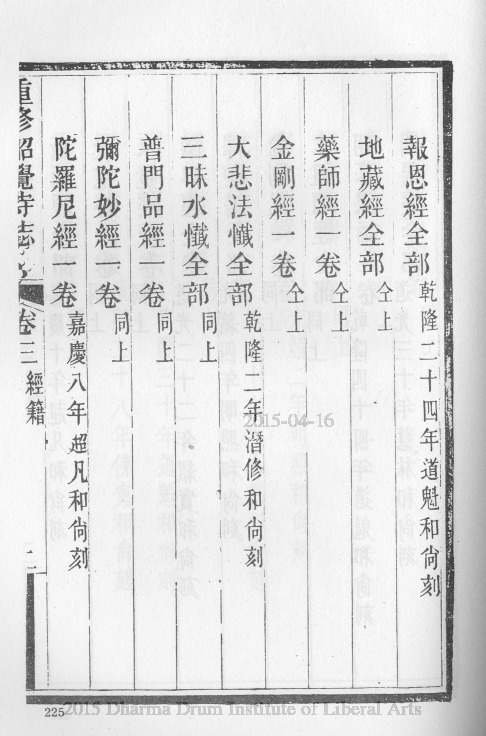 報恩經全部 乾隆二十四年道魁和尙刻
地藏經全部 仝上
藥師經一卷 仝上
金剛經一卷 仝上
大悲法懺全部 乾隆二年潛修和尙刻
三昧水懺全部 同上
普門品經一卷 同上
彌陀妙經一卷 同上
陀羅尼經一卷 嘉慶八年超凡和尙刻
重修昭覺寺志 卷三 經籍 二
2015-04-16
225
2015 Dharma Drum Institute of Liberal Arts